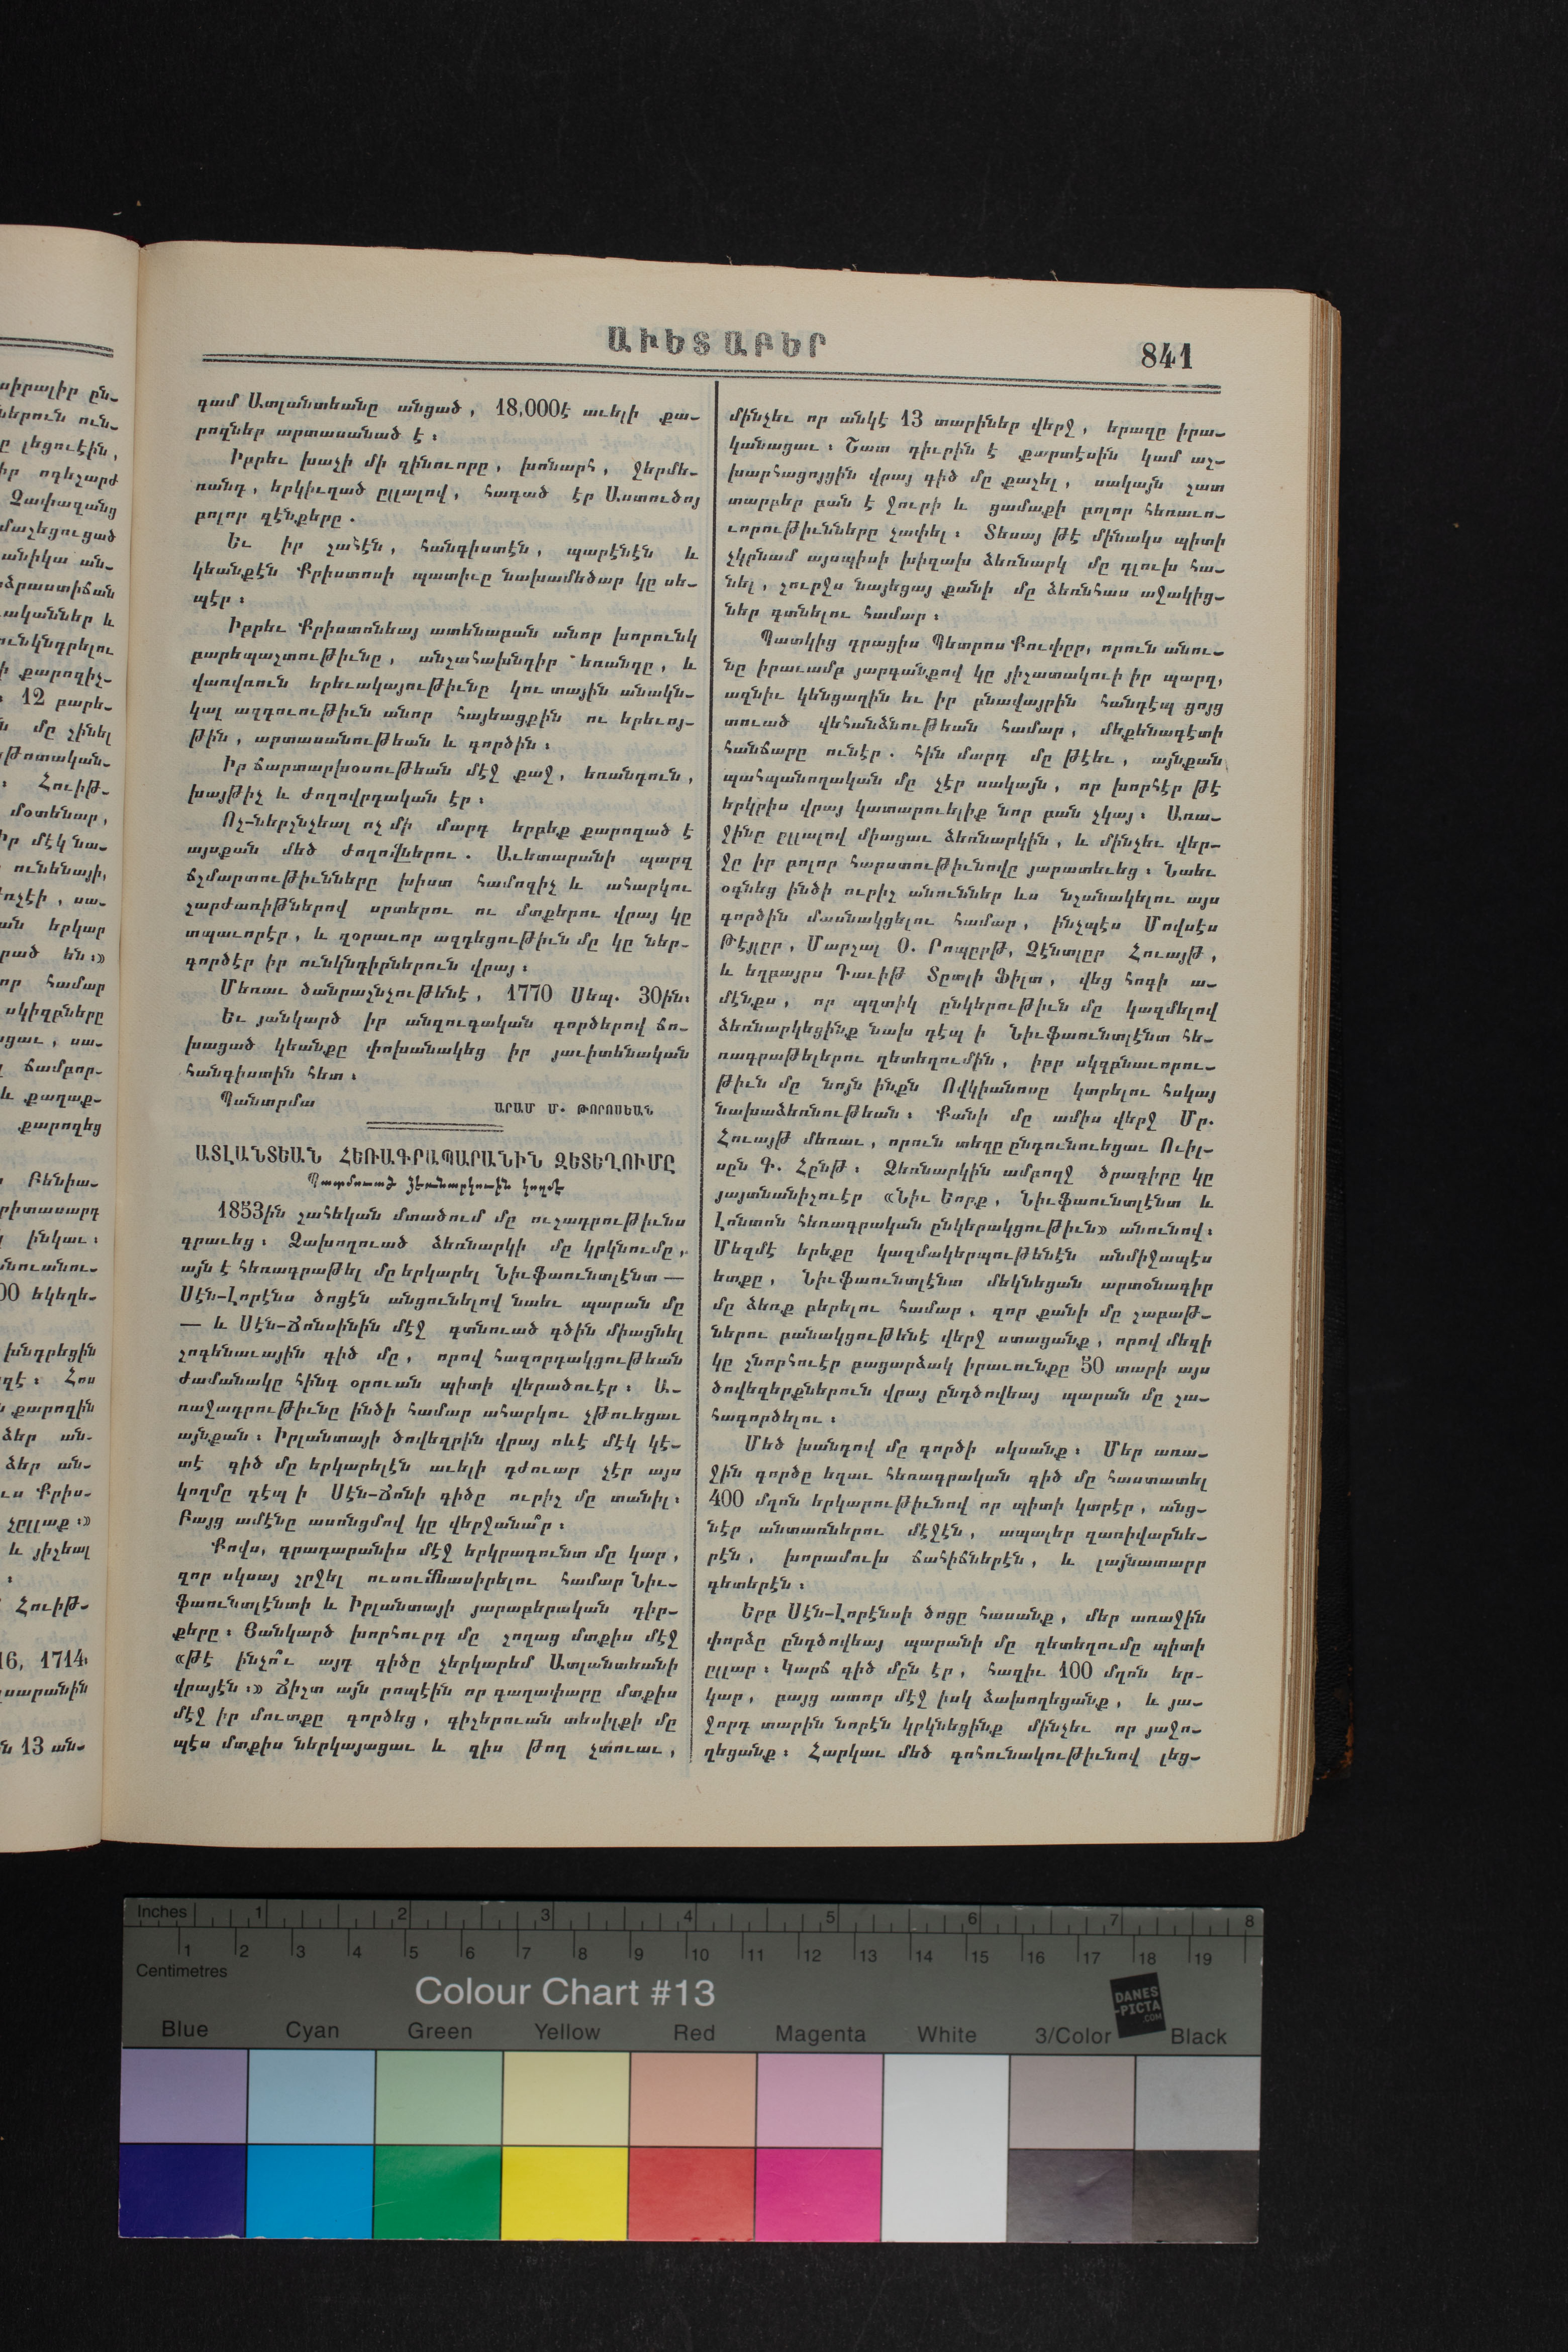 ԱՒԵՏԱԲԵՐ
841
դամ Ատլանտեանը անցած, 18,000է աւելի քա-
րոզներ արտասանած է։
Իբրեւ խաչի մի զինուորը, խոնարհ, ջերմե-
ռանդ, երկիւղած ըլլալով, հագած էր Աստուծոյ
բոլոր զէնքերը.
Եւ իր շահէն, հանգիստէն, պարէնէն և
կեանքէն Քրիստոսի պատիւը նախամեծար կը սե-
պէր։
Իբրեւ Քրիստոնեայ ատենաբան անոր խորունկ
բարեպաշտութիւնը, անշահախնդիր եռանդը, և
վառվռուն երեւակայութիւնը կու տային անակն-
կալ ազդուութիւն անոր հայեացքին ու երեւոյ-
թին, արտասանութեան և գործին։
Իր ճարտարխօսութեան մէջ քաջ, եռանդուն,
խայթիչ և ժողովրդական էր։
Ոչ-ներշնչեալ ոչ մի մարդ երբեք քարոզած է
այսքան մեծ ժողովներու. Աւետարանի պարզ
ճշմարտութիւնները խիստ համոզիչ և ահարկու
շարժառիթներով սրտերու ու մտքերու վրայ կը
տպաւորէր, և զօրաւոր ազդեցութիւն մը կը ներ-
գործէր իր ունկնդիրներուն վրայ։
Մեռաւ ծանրաշնչութենէ, 1770 Սեպ. 30ին։
Եւ յանկարծ իր անզուգական գործերով ճո-
խացած կեանքը փոխանակեց իր յաւիտենական
հանգիստին հետ։
Պանտրմա
ԱՐԱՄ Մ. ԹՈՐՈՍԵԱՆ
ԱՏԼԱՆՏԵԱՆ ՀԵՌԱԳՐԱՊԱՐԱՆԻՆ ԶԵՏԵՂՈՒՄԸ
Պատմուած Ձեռնարկուին կողմէ
1853ին շահեկան մտածում մը ուշադրութիւնս
գրաւեց։ Ձախողուած ձեռնարկի մը կրկնումը,
այն է հեռագրաթել մը երկարել Նիւֆաունտլէնտ —
Սէն-Լորէնս ծոցէն անցունելով նաեւ պարան մը
— և Սէն-Ճոնսինին մէջ գտնուած գծին միացնել
շոգենաւային գիծ մը, որով հազորդակցութեան
ժամանակը հինգ օրուան պիտի վերածուէր։ Ա-
ռաջադրութիւնը ինծի համար ահարկու չթուեցաւ
այնքան։ Իրլանտայի ծովեզրին վրայ ոևէ մէկ կէ-
տէ գիծ մը երկարելէն աւելի դժուար չէր այս
կողմը դէպ ի Սէն-Ճոնի գիծը ուրիշ մը տանիլ։
Բայց ամէնը ասոնցմով կը վերջանա՞ր։
Քովս, գրադարանիս մէջ երկրագունտ մը կար,
զոր սկսայ շրջել ուսումնասիրելու համար Նիւ-
ֆաունտլէնտի և Իրլանտայի յարաբերական դիր-
քերը։ Յանկարծ խորհուրդ մը շողաց մտքիս մէջ
«թէ ինչո՞ւ այդ գիծը չերկարեմ Ատլանտեանի
վրայէն։» Ճիշտ այն րոպէին որ գաղափարը մտքիս
մէջ իր մուտքը գործեց, գիշերուան տեսիլքի մը
պէս մտքիս ներկայացաւ և զիս թող չտուաւ,
մինչեւ որ անկէ 13 տարիներ վերջ, երազը իրա-
կանացաւ։ Շատ դիւրին է քարտէսին կամ աշ-
խարհացոյցին վրայ գիծ մը քաշել, սակայն շատ
տարբեր բան է ջուրի և ցամաքի բոլոր հեռաւո-
ւորութիւնները չափել։ Տեսայ թէ մինակս պիտի
չկրնամ այսպիսի խիզախ ձեռնարկ մը գլուխ հա-
նել, չուրջս նայեցայ քանի մը ձեռնհաս աջակից-
ներ գտնելու համար։
Պատկից դրացիս Պետրոս Քուփըր, որուն անու-
նը իրաւամբ յարգանքով կը յիշատակուի իր պարզ,
ազնիւ կենցաղին եւ իր բնավայրին հանդէպ ցոյց
տուած վեհանձնութեան համար, մեքենագէտի
հանճարը ունէր. հին մարդ մը թէեւ, այնքան
պահպանողական մը չէր սակայն, որ խորհէր թէ
երկրիս վրայ կատարուելիք նոր բան չկայ։ Առա-
ջինը ըլլալով միացաւ ձեռնարկին, և մինչեւ վեր-
ջը իր բոլոր հարստութիւնովը յարատեւեց։ Նաեւ
օգնեց ինծի ուրիշ անուններ ևս նշանակելու այս
գործին մասնակցելու համար, ինչպէս Մովսէս
Թէյլըր, Մարշալ Օ. Րոպըրթ, Չէնտլըր Հուայթ,
և եղբայրս Դաւիթ Տըտլի Ֆիլտ, վեց հոգի ա-
մէնքս, որ պզտիկ ընկերութիւն մը կազմելով
ձեռնարկեցինք նախ դէպ ի Նիւֆաունտլէնտ հե-
ռագրաթելերու զետեղումին, իբր սկզբնաւորու-
թիւն մը նոյն ինքն Ովկիանոսը կտրելու հսկայ
նախաձեռնութեան։ Քանի մը ամիս վերջ Մր.
Հուայթ մեռաւ, որուն տեղը ընդունուեցաւ Ուիլ-
սըն Գ. Հընթ։ Ձեռնարկին ամբողջ ծրագիրը կը
յայտնանիշուէր «Նիւ Եորք, Նիւֆաունտլէնտ և
Լոնտոն հեռագրական ընկերակցութիւն» անունով։
Մեզմէ երեքը կազմակերպութենէն անմիջապէս
ետքը, Նիւֆաունտլէնտ մեկնեցան արտօնագիր
մը ձեռք բերելու համար, զոր քանի մը շաբաթ-
ներու բանակցութենէ վերջ ստացանք, որով մեզի
կը շնորհուէր բացարձակ իրաւունքը 50 տարի այս
ծովեզերքներուն վրայ ընդծովեայ պարան մը շա-
հագործելու։
Մեծ խանդով մը գործի սկսանք։ Մեր առա-
ջին գործը եղաւ հեռագրական գիծ մը հաստատել
400 մղոն երկարութիւնով որ պիտի կտրէր, անց-
նէր անտառներու մէջէն, ապալեր զառիվարնե-
րէն, խորամուխ ճահիճներէն, և լայնատարր
գետերէն։
Երբ Սէն-Լորէնսի ծոցը հասանք, մեր առաջին
փորձը ընդծովեայ պարանի մը զետեղումը պիտի
ըլլար։ Կարճ գիծ մըն էր, հազիւ 100 մղոն եր-
կար, բայց ատոր մէջ իսկ ձախողեցանք, և յա-
ջորդ տարին նորէն կրկնեցինք մինչեւ որ յաջո-
ղեցանք։ Հարկաւ մեծ գոհունակութիւնով լեց-
Inches 1 2 3 4 5 6 7 8
1 2 3 4 5 6 7 8 9 10 11 12 13 14 15 16 17 18 19
Centimetres
Colour Chart #13
DANES
-PICTA
.COM
Blue Cyan Green Yellow Red Magenta White 3/Color Black